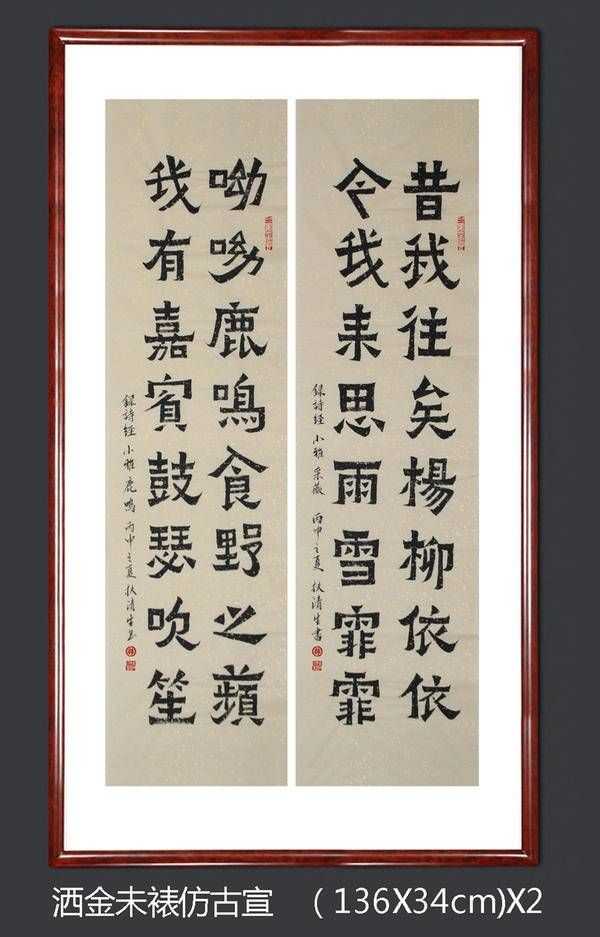 昔我往矣楊柳依依
今我来思雨雪霏霏
録詩經 小雅 采薇 丙申之夏 清生書
呦呦鹿鳴食野之蘋
我有嘉賓鼓瑟吹笙
録詩經 小雅 鹿鳴 丙申之夏 清生書
洒金未裱仿古宣 （136X34cm)X2